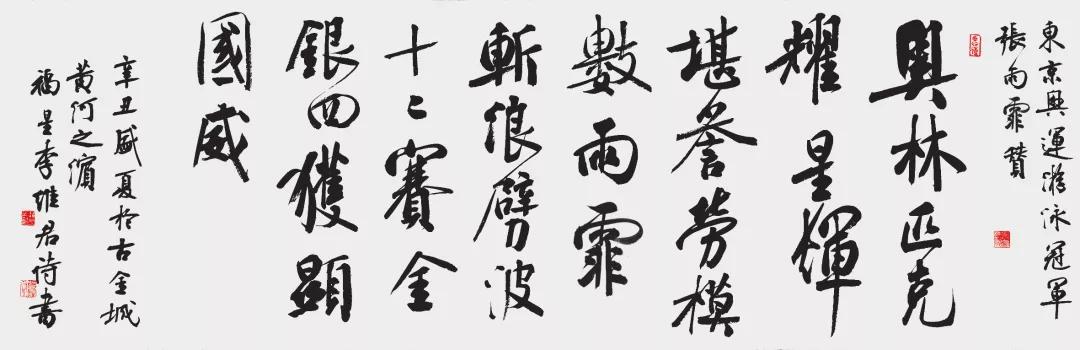 東京奧運游泳冠軍
張雨霏贊
奧林匹克
耀星輝
堪誉勞模
數雨霏
斬浪劈波
十二賽金
銀四獲顯
國威
辛丑盛夏於古金城
黄河之濱
福星李維君诗书